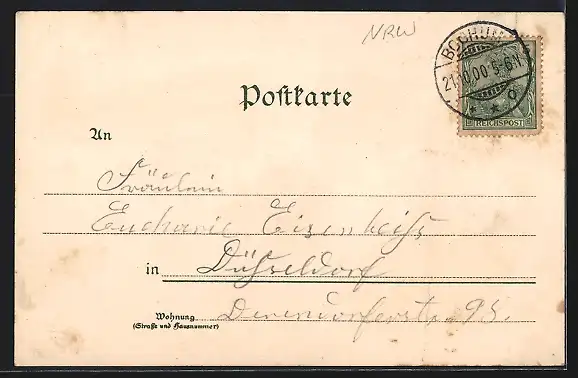 NRW
BOCHUM
21.10.00 5-6 N
* * d
REICHSPOST
Postkarte
An
Fräulein
Eucharie Eisenheiss
in Düsseldorf
Wohnung Derendorferstr. 95.
(Straße und Hausnummer)